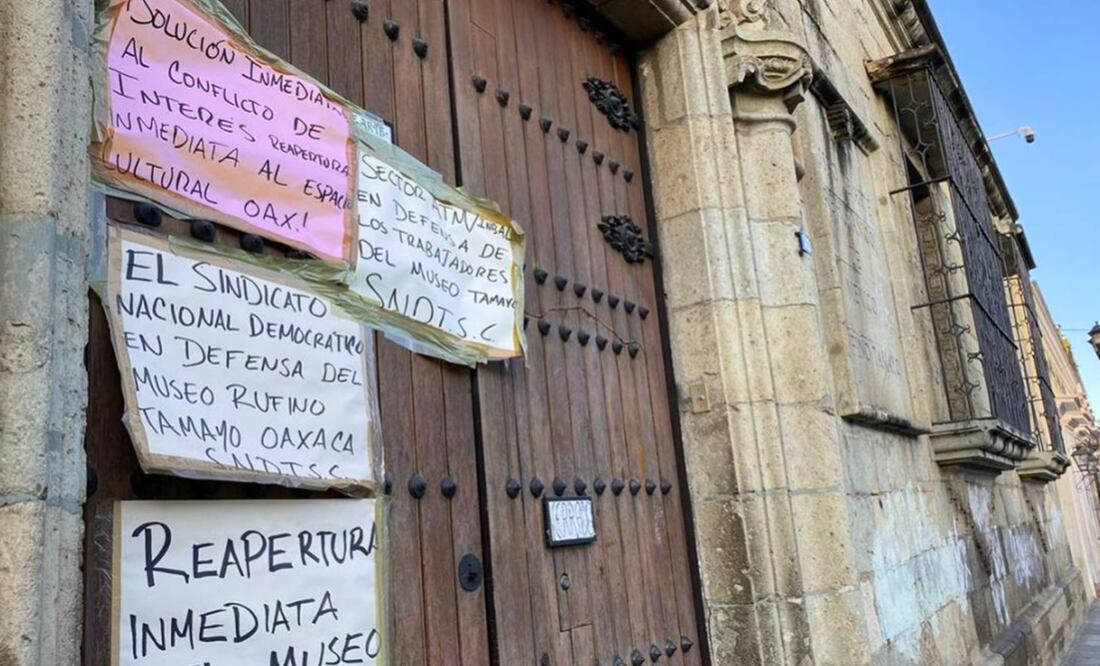 SOLUCIÓN INMEDIATA
AL CONFLICTO DE
INTERÉS REAPERTURA
INMEDIATA AL ESPACIO
CULTURAL OAX.!
SECTOR ATM/INBAL
EN DEFENSA DE
LOS TRABAJADORES
DEL MUSEO TAMAYO
S.N.D.T.S.C.
EL SINDICATO
NACIONAL DEMOCRÁTICO
EN DEFENSA DEL
MUSEO RUFINO
TAMAYO OAXACA
S.N.D.T.S.C.
REAPERTURA
INMEDIATA
MUSEO
CERRADO